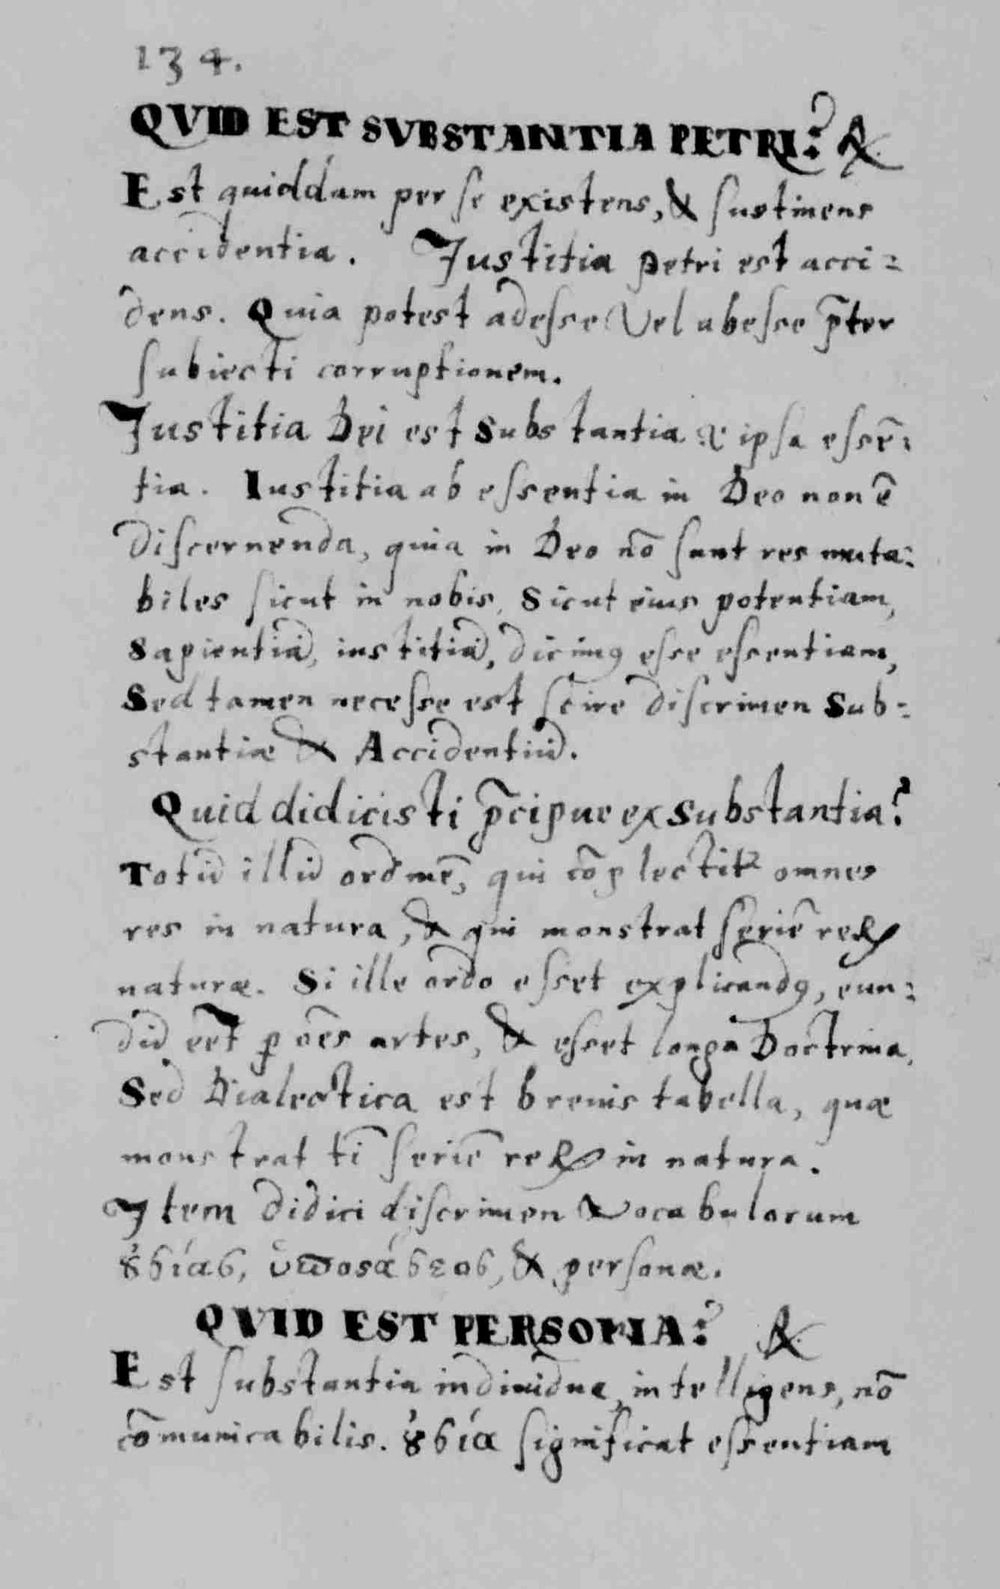 134.
QVID EST SVBSTANTIA PETRI? R
Est quiddam per se existens, & sustinens
accidentia. Justitia petri est acci=
dens. Quia potest adesse vel abesse p̄ter
subiecti corruptionem.
Justitia Dei est Substantia & ipsa essē=
tia. Iustitia ab essentia in Deo non ē
discernenda, quia in Deo nō sunt res muta=
biles sicut in nobis, Sicut eius potentiam,
Sapientiā, iustitiā, dicimꝰ esse essentiam,
Sed tamen necesse est scire discrimen Sub=
stantiæ & Accidentiū.
Quid didicisti p̄cipue ex Substantia?
Totū illū ordinē, qui cōplectitʳ omnes
res in natura, & qui monstrat seriē reꝝ
naturæ. Si ille ordo esset explicandꝰ, eun=
dū eēt ꝑ oēs artes, & esset longa Doctrina,
Sed Dialectica est breuis tabella, quæ
monstrat tī seriē reꝝ in natura.
Item didici discrimen vocabulorum
ȣ̓σίας, ὑποσάσεος, & personæ.
QVID EST PERSONA? R
Est substantia indiuidua, intelligens, nō
cōmunicabilis. ȣ̓σία significat essentiam